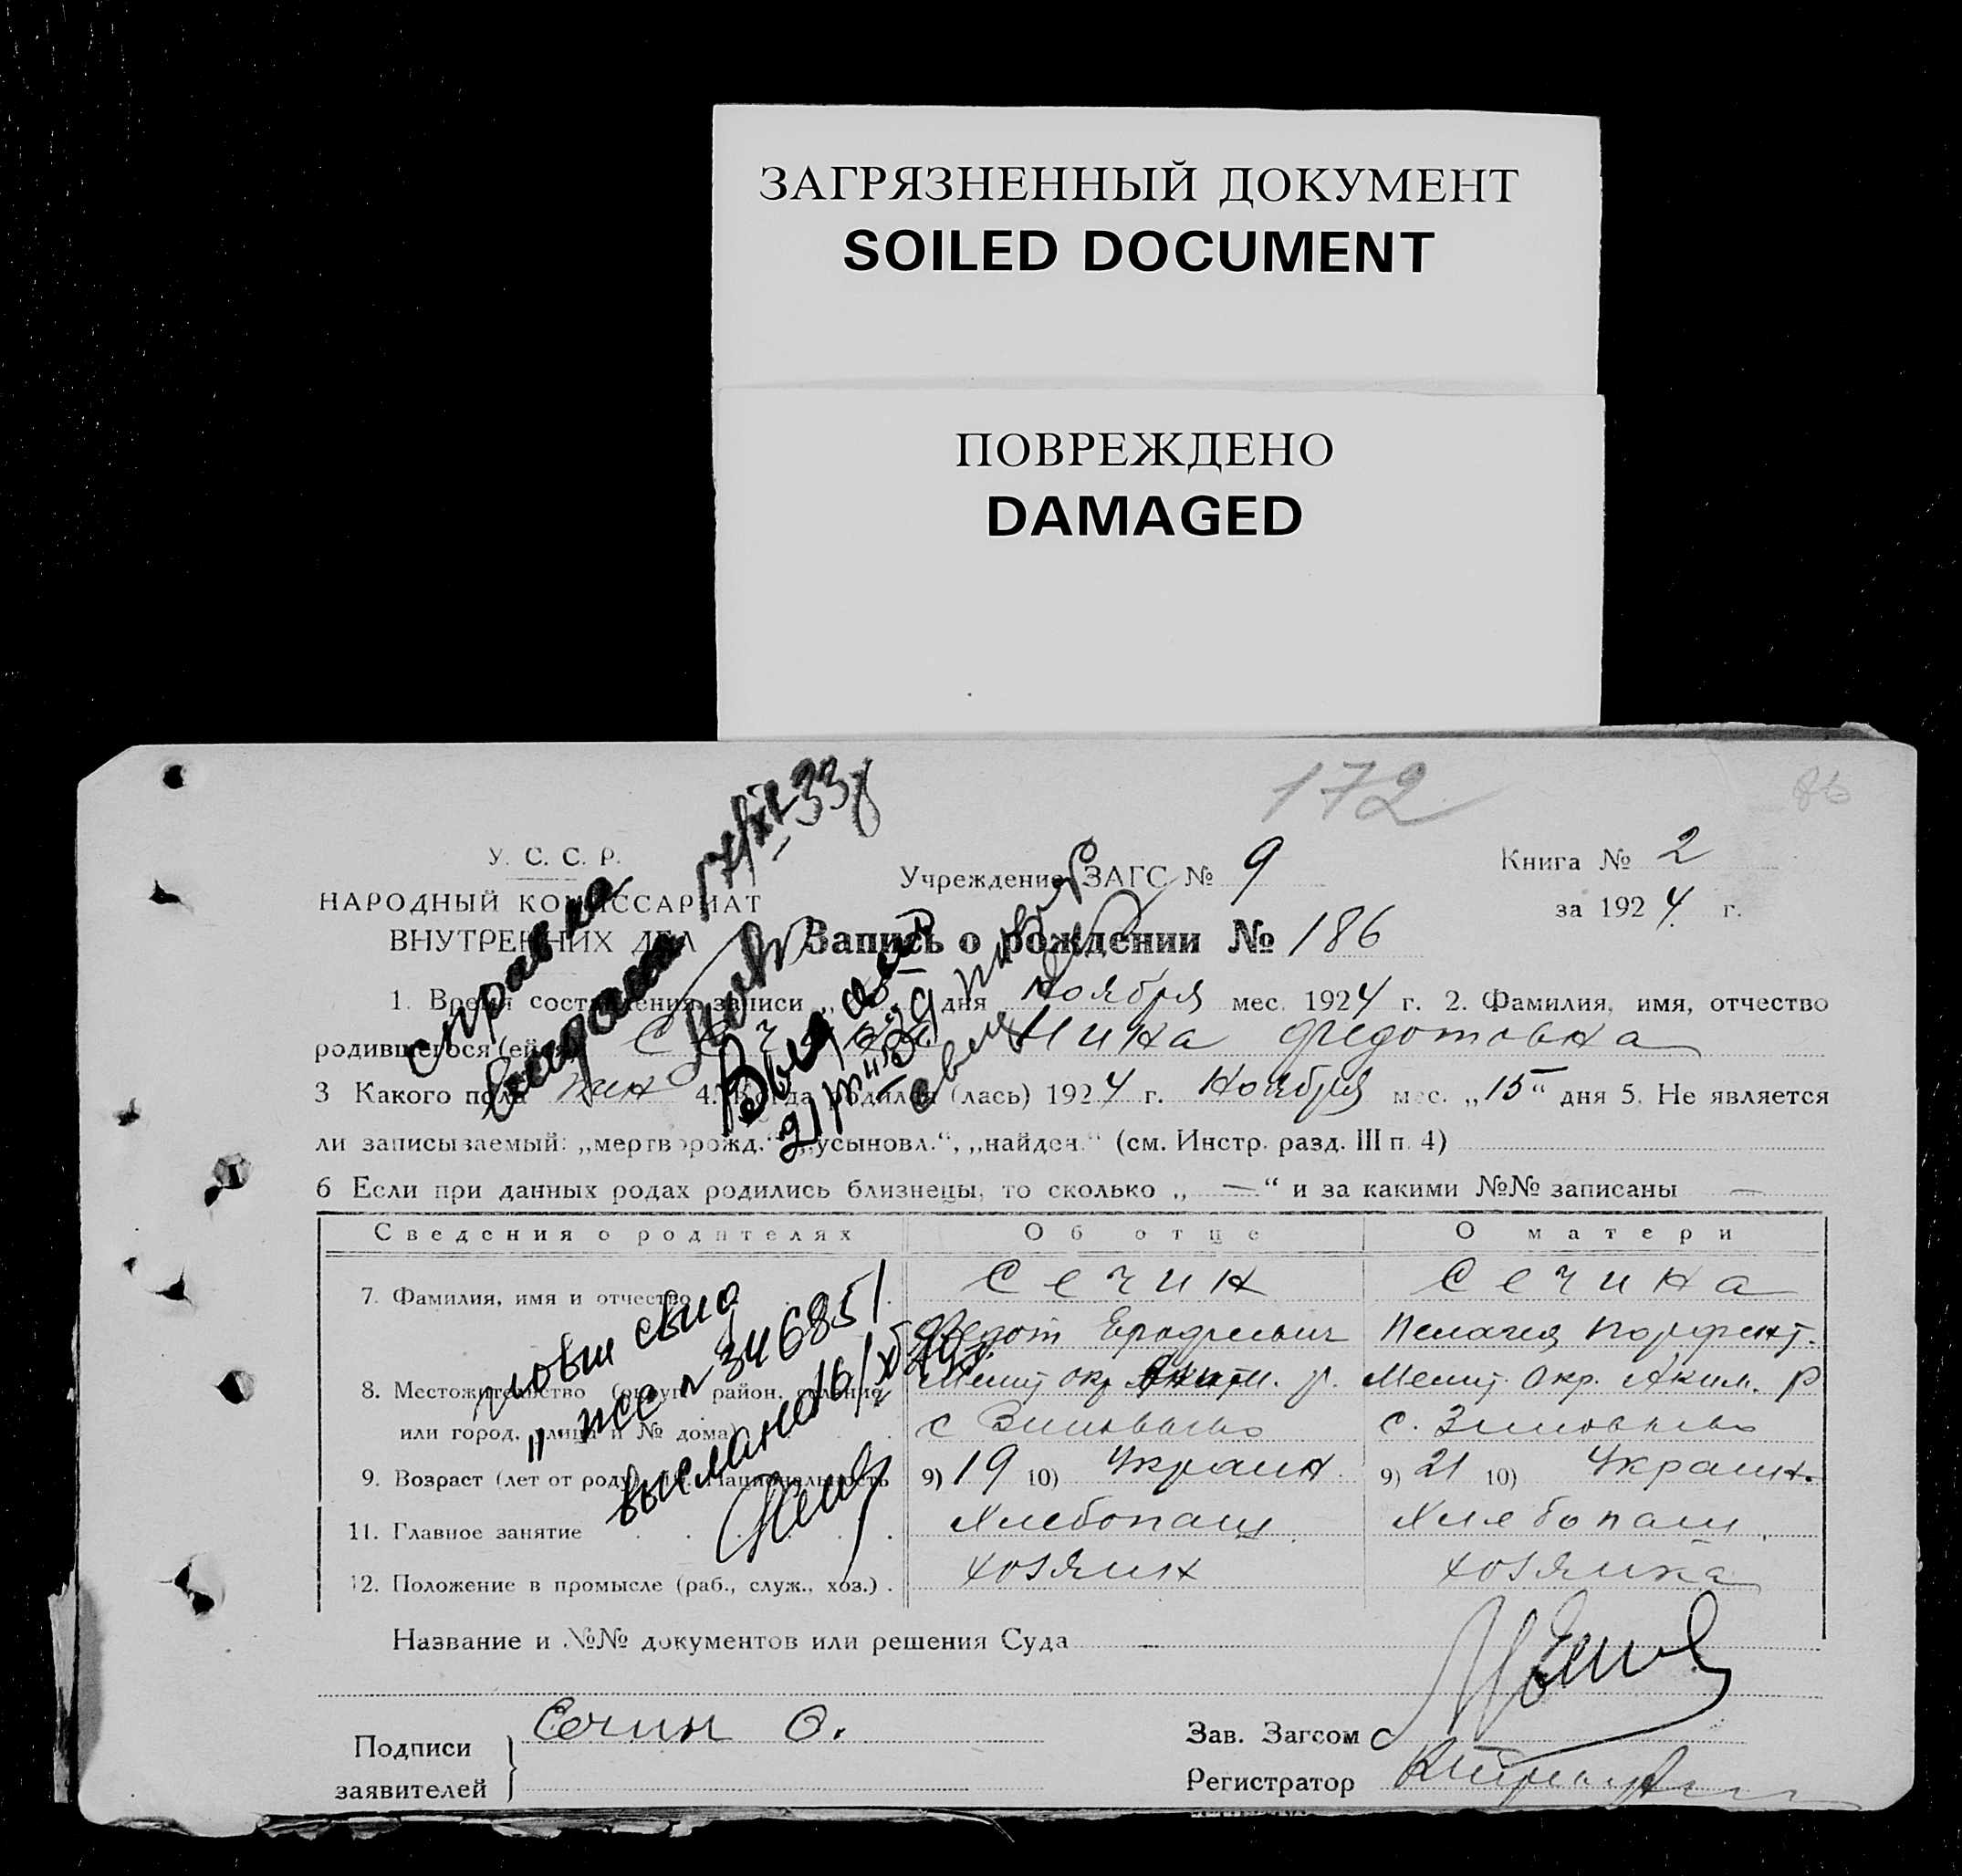 ЗАГРЯЗНЕННЫЙ ДОКУМЕНТ
SOILED DOCUMENT
ПОВРЕЖДЕНО
DAMAGED
172
86
У. С. С. Р.
НАРОДНЫЙ КОМИССАРИАТ
ВНУТРЕННИХ ДЕЛ
Учреждение ЗАГС № 9
Книга № 2
за 1924 г.
Запись о рождении № 186
справка
выдана 17/XII 33
Выдан
1. Время составления записи „ дня Ноября мес. 1924 г. 2. Фамилия, имя, отчество
родившегося (ейся) Нина Федотовна
3 Какого пола жен 4. Когда родился (лась) 1924 г. Ноября мес. „15“ дня 5. Не является
ли записываемый: „мертворожд.“ „усыновл.“, „найден.“ (см. Инстр. разд. III п. 4)
6 Если при данных родах родились близнецы, то сколько „ — “ и за какими №№ записаны —
Сведения о родителях Об отце О матери
7. Фамилия, имя и отчество Сечин Сечина
Федот Пелагея Порфент.
8. Местожительство (округ, район, селение Мелит. окр. р. Мелит. Окр. Аким. р
или город, улица и № дома) с с. Зиновьево
9. Возраст (лет от роду) 10. Национальность 9) 19 10) Украин. 9) 21 10) Украин.
11. Главное занятие Хлебопаш. Хлебопаш.
12. Положение в промысле (раб., служ., хоз.) хозяин хозяйка
№ 346851
выслано 16/
Название и №№ документов или решения Суда —
Подписи
заявителей
Сечин Ф.
Зав. Загсом
Регистратор